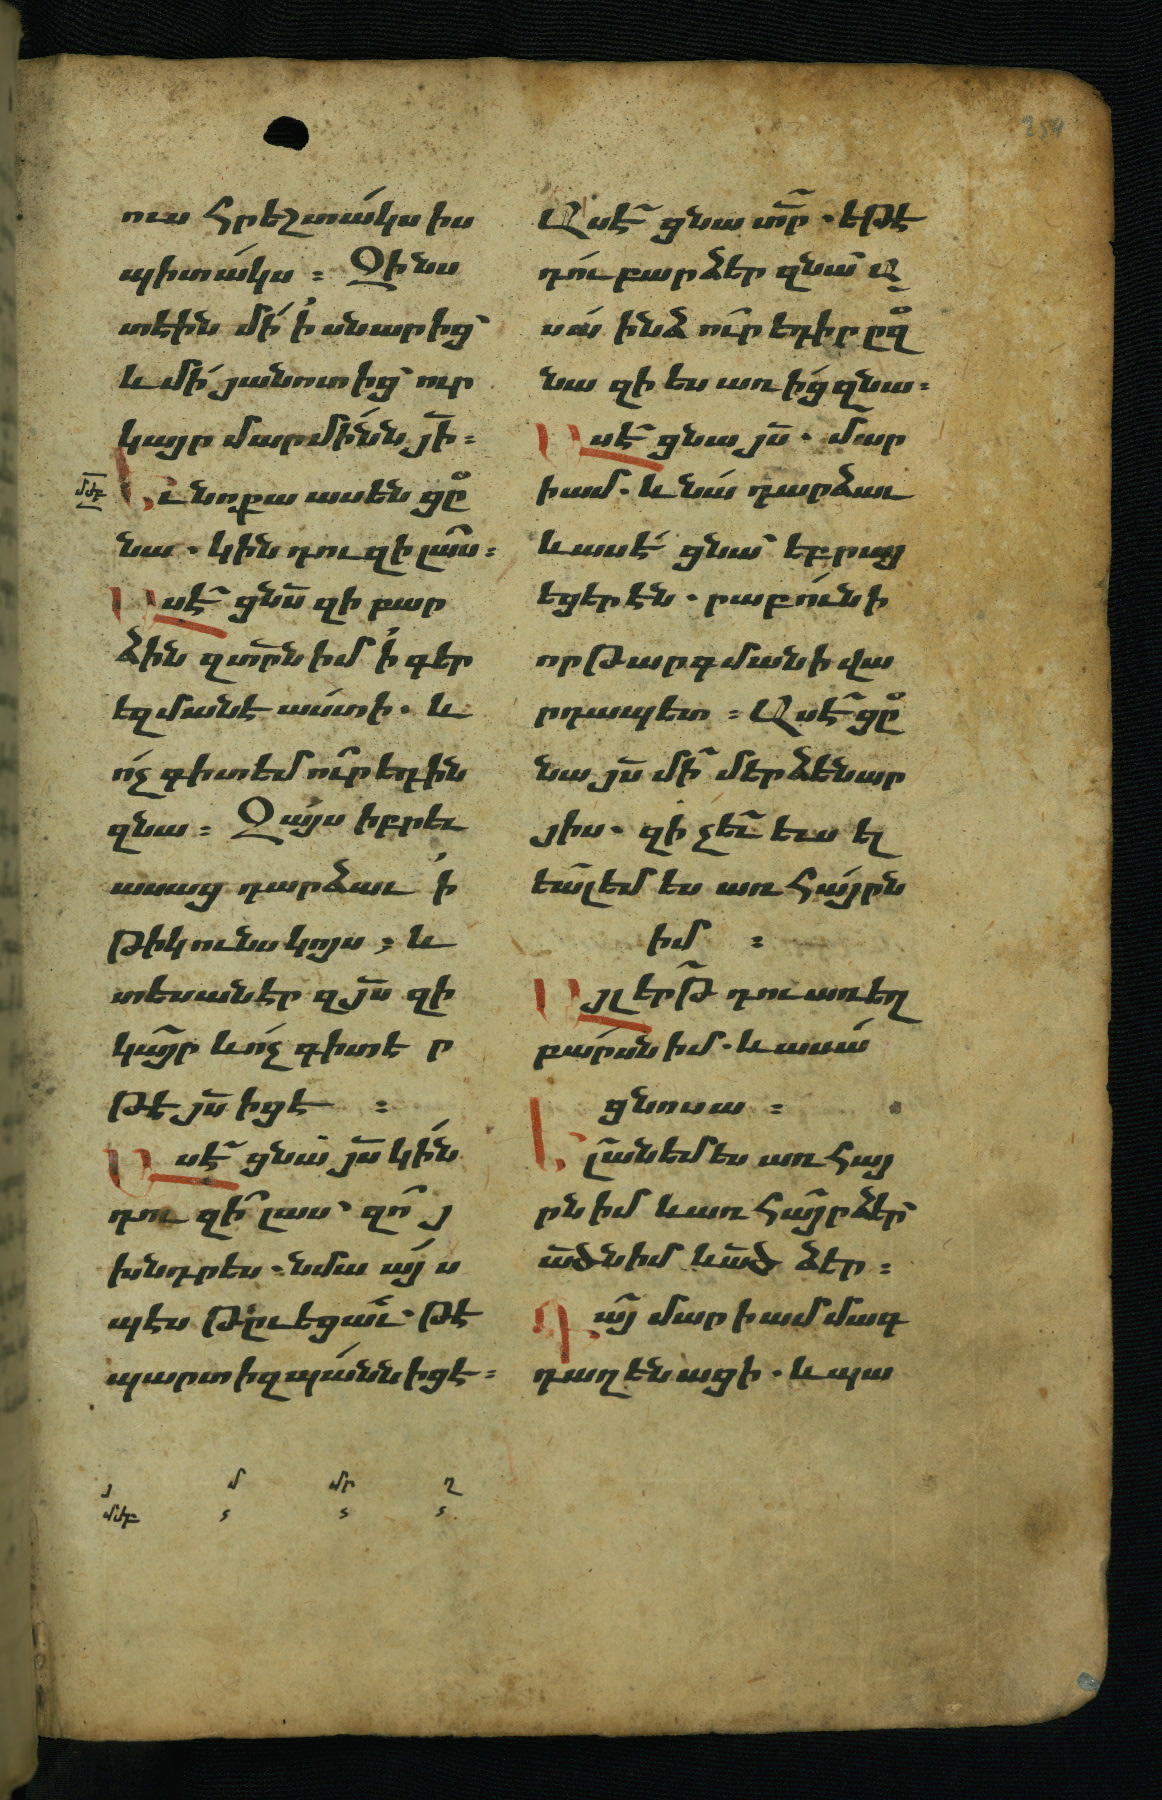 254
ուս հրեշտակս իս
պիտակս : Զի նս
տէին մի ի սնարից
և մի յանոտից ուր
կայր մարմինն յի :
մժբ
Եւ նոքա ասեն ցը
նա . կին դու զի լաս :
Ասէ ցնս զի բար
ձին զտրն իմ ի գեր
եզմանէ աստի . և
ոչ գիտեմ ուր եդին
զնա : Զայս իբրեւ
ասաց դարձաւ ի
թիկունս կոյս ; և
տեսանէր զյս զի
կայր և ոչ գիտէ ր
թէ յս իցէ :
Ասէ ցնա յս կին
դու զի լաս զո յ
խնդրես . նմա այ ս
պէս թըւեցաւ . թէ
պարտիզպանն իցէ :
Ասէ ցնա տր . եթէ
դու բարձեր զնա ա
սա ինձ ուր եդիր ըզ
նա զի ես առից զնա :
Ասէ ցնա յս . մար
իամ . և նա դարձաւ
և ասէ ցնա եբրայ
եցերէն . րաբունի
որ թարգմանի վա
րդապետ : Ասէ ցը
նա յս մի մերձենար
յիս . զի չեւ ևս ել
եալ եմ ես առ հայրն
իմ :
Այլ երթ դու առ եղ
բարսն իմ . և ասա
ցնոսա :
Ելանեմ ես առ հայ
րն իմ և առ հայր ձեր
ած նիմ և ած ձեր :
Գայ մարիամ մագ
դաղենացի . և պա
յ մ մր ղ
մժբ